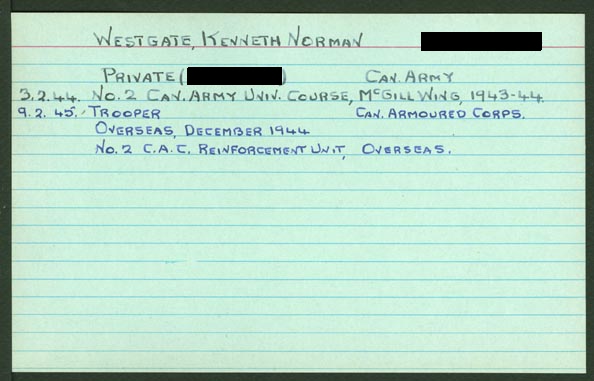 WESTGATE, KENNETH NORMAN
PRIVATE ( ) CAN. ARMY
3.2.44. NO. 2 CAN. ARMY UNIV. COURSE, MCGILL WING, 1943-44.
9.2.45. TROOPER CAN. ARMOURED CORPS.
OVERSEAS, DECEMBER 1944
NO. 2 C.A.C. REINFORCEMENT UNIT, OVERSEAS.